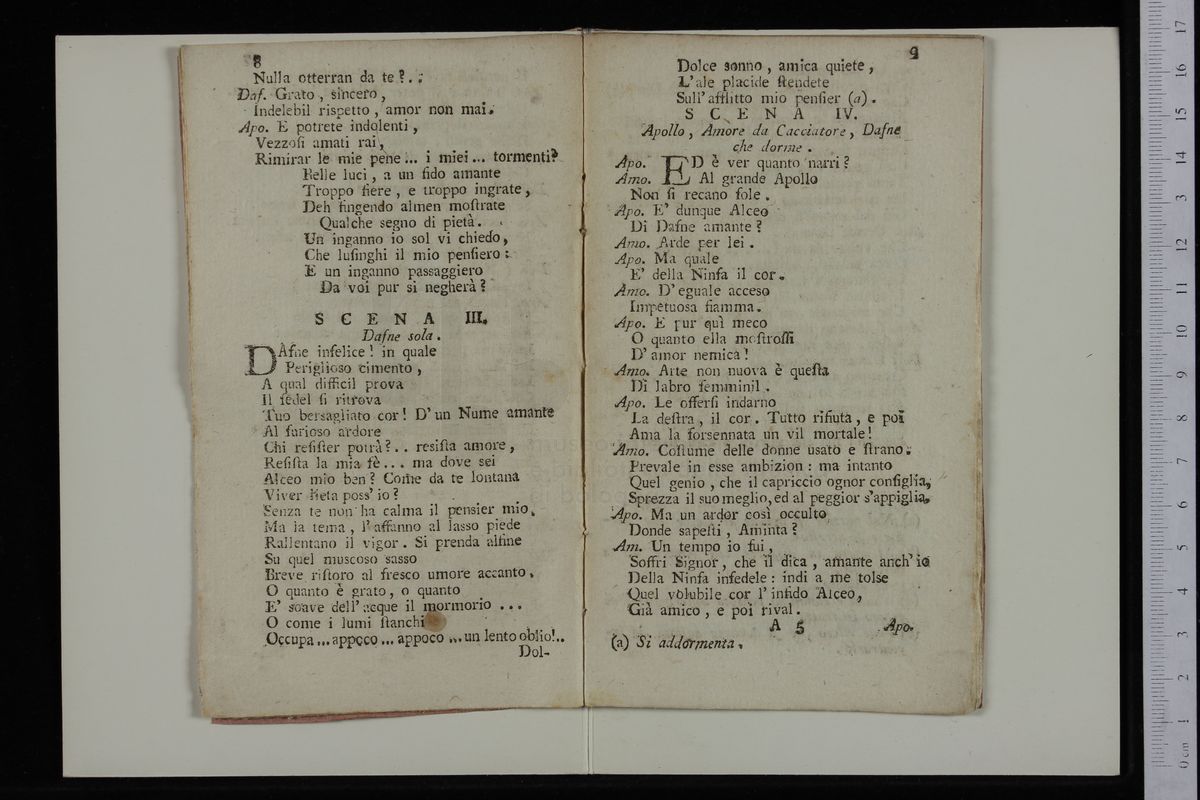 8
Nulla otterran da te?..
Daf. Grato, sincero,
Indelebil rispetto, amor non mai.
Apo. E potrete indolenti,
Vezzosi amati rai,
Rimirar le mie pene... i miei... tormenti?
Belle luci, a un fido amante
Troppo fiere, e troppo ingrate,
Deh fingendo almen mostrate
Qualche segno di pietà.
Un inganno io sol vi chiedo,
Che lusinghi il mio pensiero:
E un inganno passaggiero
Da voi pur si negherà?
SCENA III.
Dafne sola.
DAfne infelice! in quale
Periglioso cimento,
A qual difficil prova
Il fedel si ritrova
Tuo bersagliato cor! D'un Nume amante
Al furioso ardore
Chi resister potrà?.. resista amore,
Resista la mia fè... ma dove sei
Alceo mio ben? Come da te lontana
Viver lieta poss' io?
Senza te non ha calma il pensier mio.
Ma la tema, l'affanno al lasso piede
Rallentano il vigor. Si prenda alfine
Su quel muscoso sasso
Breve ristoro al fresco umore accanto.
O quanto è grato, o quanto
E' soave dell'acque il mormorio...
O come i lumi stanchi
Occupa... appoco... appoco... un lento oblio!..
Dol-
9
Dolce sonno, amica quiete,
L'ale placide stendete
Sull'afflitto mio pensier (a).
SCENA IV.
Apollo, Amore da Cacciatore, Dafne
che dorme.
Apo. ED è ver quanto narri?
Amo. Al grande Apollo
Non si recano fole.
Apo. E' dunque Alceo
Di Dafne amante?
Amo. Arde per lei.
Apo. Ma quale
E' della Ninfa il cor.
Amo. D'eguale acceso
Impetuosa fiamma.
Apo. E pur quì meco
O quanto ella mostrossi
D'amor nemica!
Amo. Arte non nuova è questa
Di labro femminil.
Apo. Le offersi indarno
La destra, il cor. Tutto rifiuta, e poi
Ama la forsennata un vil mortale!
Amo. Costume delle donne usato e strano.
Prevale in esse ambizion: ma intanto
Quel genio, che il capriccio ognor consiglia,
Sprezza il suo meglio, ed al peggior s'appiglia.
Apo. Ma un ardor così occulto
Donde sapesti, Aminta?
Am. Un tempo io fui,
Soffri Signor, che il dica, amante anch'io
Della Ninfa infedele: indi a me tolse
Quel volubile cor l'infido Alceo,
Già amico, e poi rival.
A 5 Apo.
(a) Si addormenta.
0 cm 1 2 3 4 5 6 7 8 9 10 11 12 13 14 15 16 17